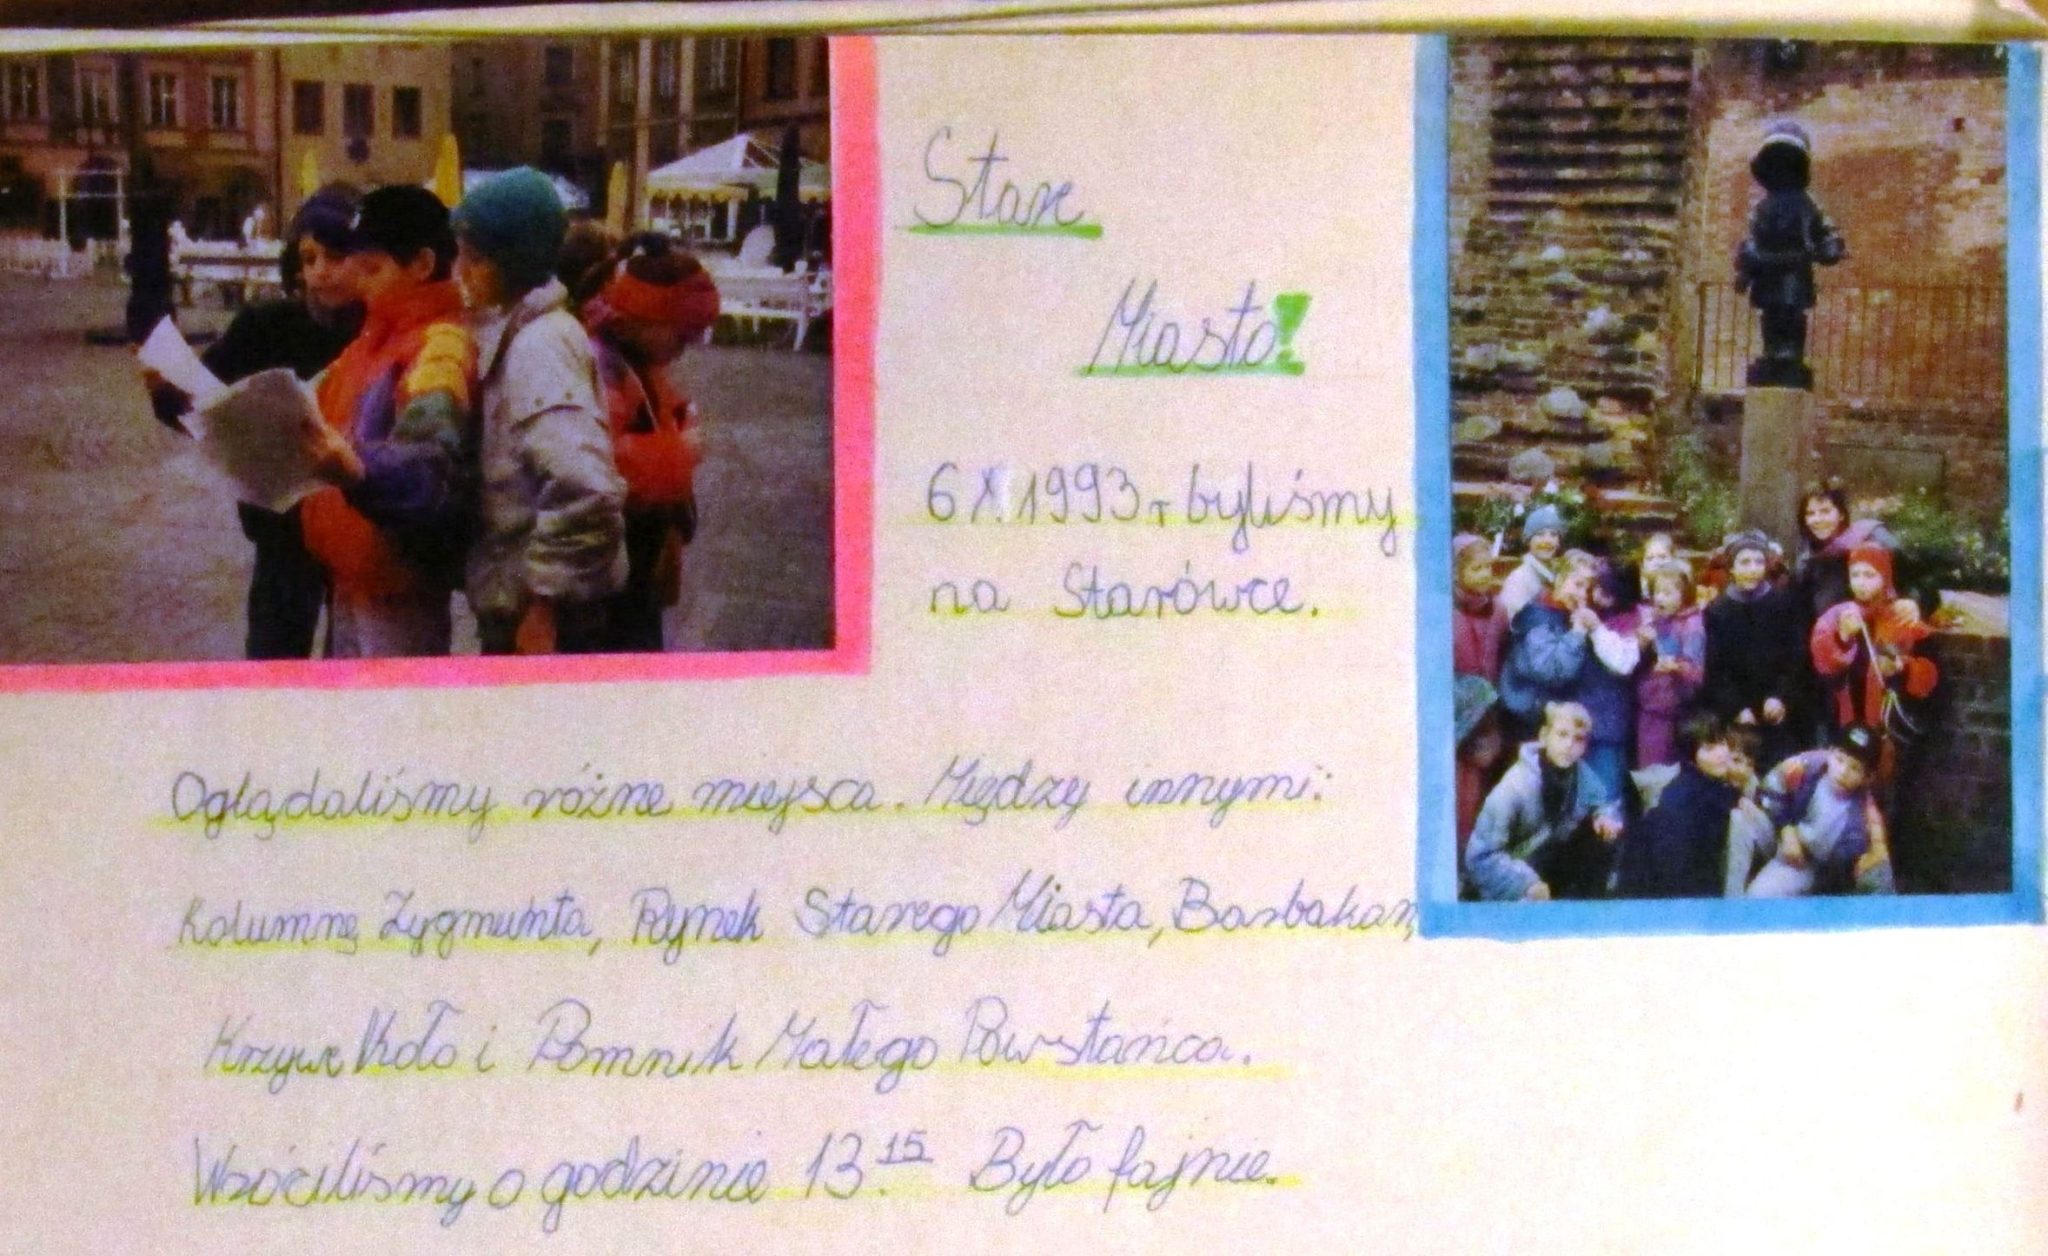 Stare
Miasto!
6 X 1993 r byliśmy
na Starówce.
Oglądaliśmy różne miejsca. Między innymi:
Kolumnę Zygmunta, Rynek Starego Miasta, Barbakan,
Krzywe Koło i Pomnik Małego Powstańca.
Wróciliśmy o godzinie 13.15 Było fajnie.